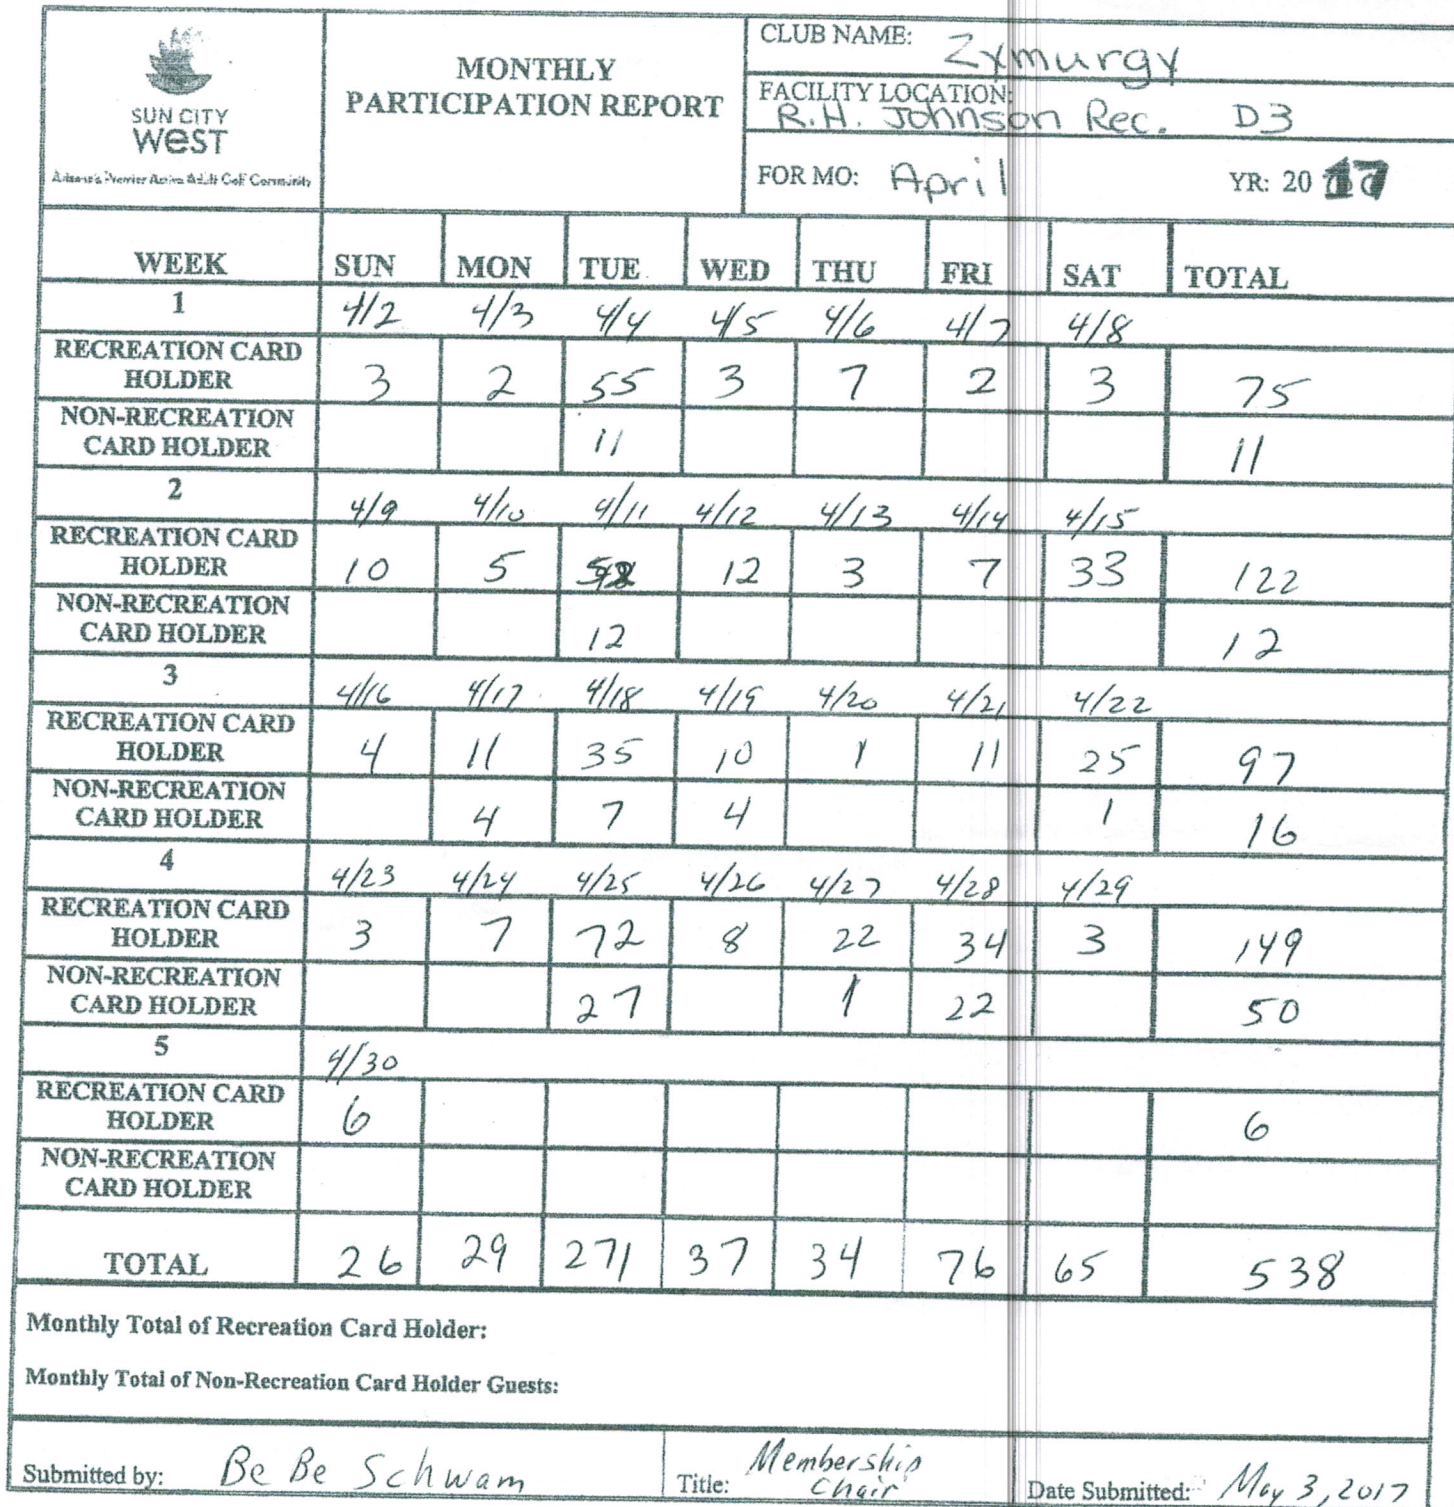 SUN CITY
west
Arizona's Premier Active Adult Golf Community
MONTHLY
PARTICIPATION REPORT
CLUB NAME: Zymurgy
FACILITY LOCATION:
R.H. Johnson Rec. D3
FOR MO: April YR: 20 17
WEEK SUN MON TUE WED THU FRI SAT TOTAL
1 4/2 4/3 4/4 4/5 4/6 4/7 4/8
RECREATION CARD
HOLDER 3 2 55 3 7 2 3 75
NON-RECREATION
CARD HOLDER 11 11
2 4/9 4/10 4/11 4/12 4/13 4/14 4/15
RECREATION CARD
HOLDER 10 5 12 3 7 33 122
NON-RECREATION
CARD HOLDER 12 12
3 4/16 4/17 4/18 4/19 4/20 4/21 4/22
RECREATION CARD
HOLDER 4 11 35 10 1 11 25 97
NON-RECREATION
CARD HOLDER 4 7 4 1 16
4 4/23 4/24 4/25 4/26 4/27 4/28 4/29
RECREATION CARD
HOLDER 3 7 72 8 22 34 3 149
NON-RECREATION
CARD HOLDER 27 1 22 50
5 4/30
RECREATION CARD
HOLDER 6 6
NON-RECREATION
CARD HOLDER
TOTAL 26 29 271 37 34 76 65 538
Monthly Total of Recreation Card Holder:
Monthly Total of Non-Recreation Card Holder Guests:
Submitted by: BeBe Schwam Title: Membership Chair Date Submitted: May 3, 2017